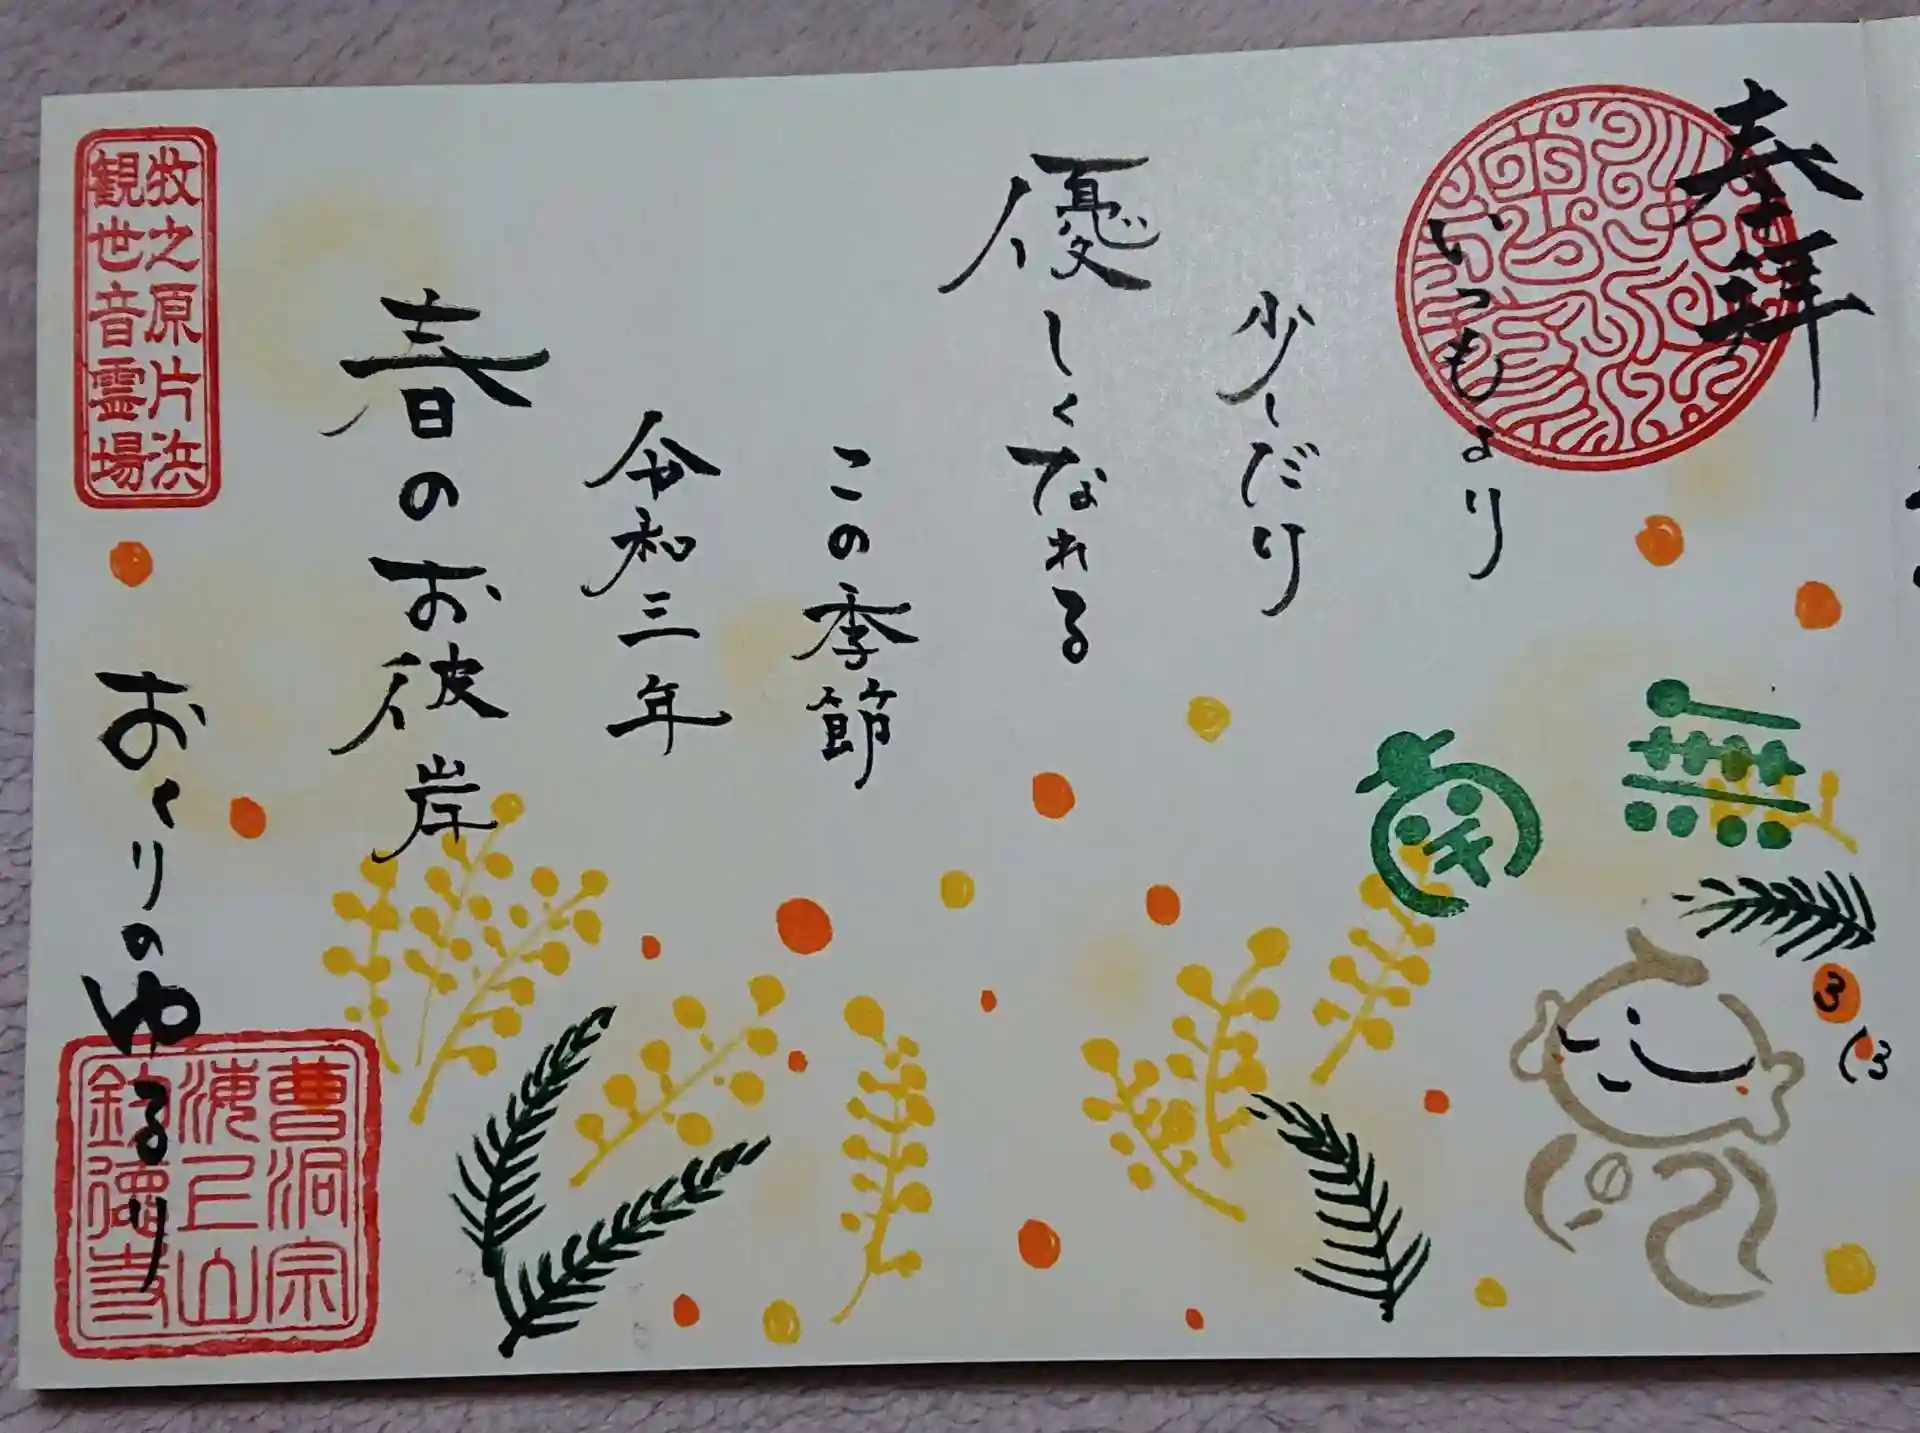 奉拝
いつもより
少しだけ
優しくなれる
この季節
令和三年
春のお彼岸
おくりのゆるり
牧之原片浜
観世音霊場
南
無
曹洞宗
海上山
釣徳寺
3